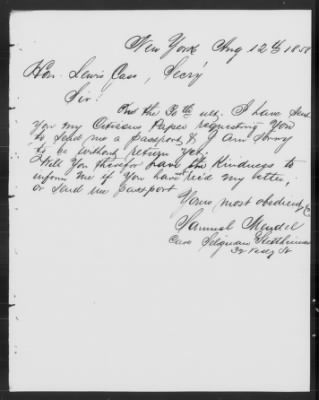 New York Aug 12th 1858
Hon. Lewis Cass, Secry
Sir!
On the 30th ult. I have sent
you my Citizens Paper requesting You
to send me a passport, & I Am Sorry
to be without return yet.
Will You therefor have the Kindness to
inform me if You have rec'd my letter,
or send me passport
Yours most obedient,
Samuel Mendel
Care Seligman &
32 St